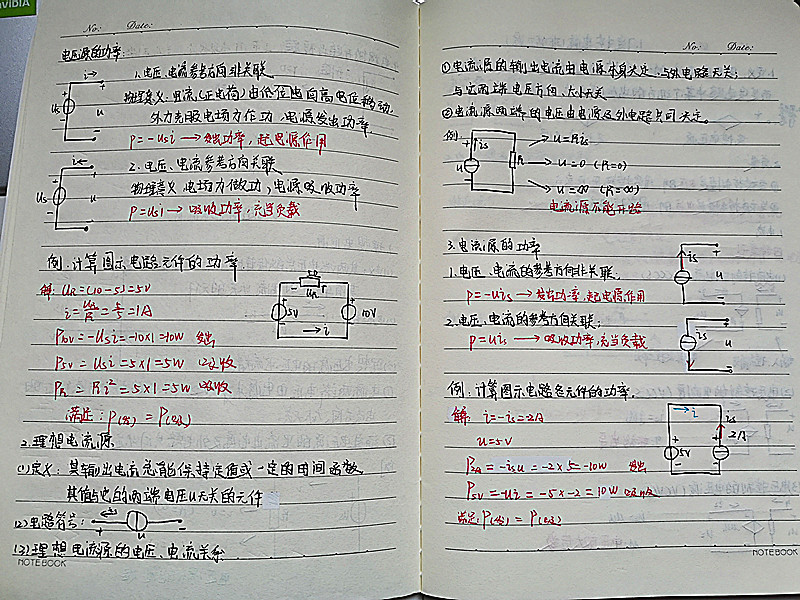 NVIDIA
No: Date:
电压源的功率:
i
+
Us
u
-
1.电压、电流参考方向非关联
物理意义:电流(正电荷)由低位电向高电位移动,
外力克服电场力作功,电源发出功率
P=-Usi→发出功率,起电源作用
i
+
Us
u
-
2.电压、电流参考方向关联
物理意义:电场力做功,电源吸收功率
P=Usi→吸收功率,充当负载
例:计算图示电路元件的功率
解: UR=(10-5)=5V
i=UR/R=5/5=1A
P10V=-Usi=-10×1=10W 发出
P5V=Usi=5×1=5W 吸收
PR=Ri²=5×1=5W 吸收
满足:P(发)=P(吸)
- UR +
5V
10V
→i
2.理想电流源
(1)定义:其输出电流总能保持定值或一定的时间函数
其值与它的两端电压u无关的元件
(2)电路符号:
+ u -
(3)理想电流源的电压、电流关系
NOTEBOOK
No: Date:
①电流源的输出电流由电源本身决定,与外电路无关;
与它两端电压方向、大小无关
②电流源两端的电压由电源及外电路共同决定。
例
+ is
u
-
R
u=Ris
u=0 (R=0)
u=∞ (R=∞)
电流源不能开路
3.电流源的功率
1.电压、电流的参考方向非关联
P=-uis→发出功率,起电源作用
is
+
u
-
2.电压、电流的参考方向关联:
P=uis→吸收功率,充当负载
is
+
u
-
例:计算图示电路各元件的功率.
解: i=-is=2A
u=5V
P2A=-isu=-2×5=-10W 发出
P5V=-ui=-5×-2=10W 吸收
满足:P(发)=P(吸)
→i
is
2A
+
5V
-
NOTEBOOK